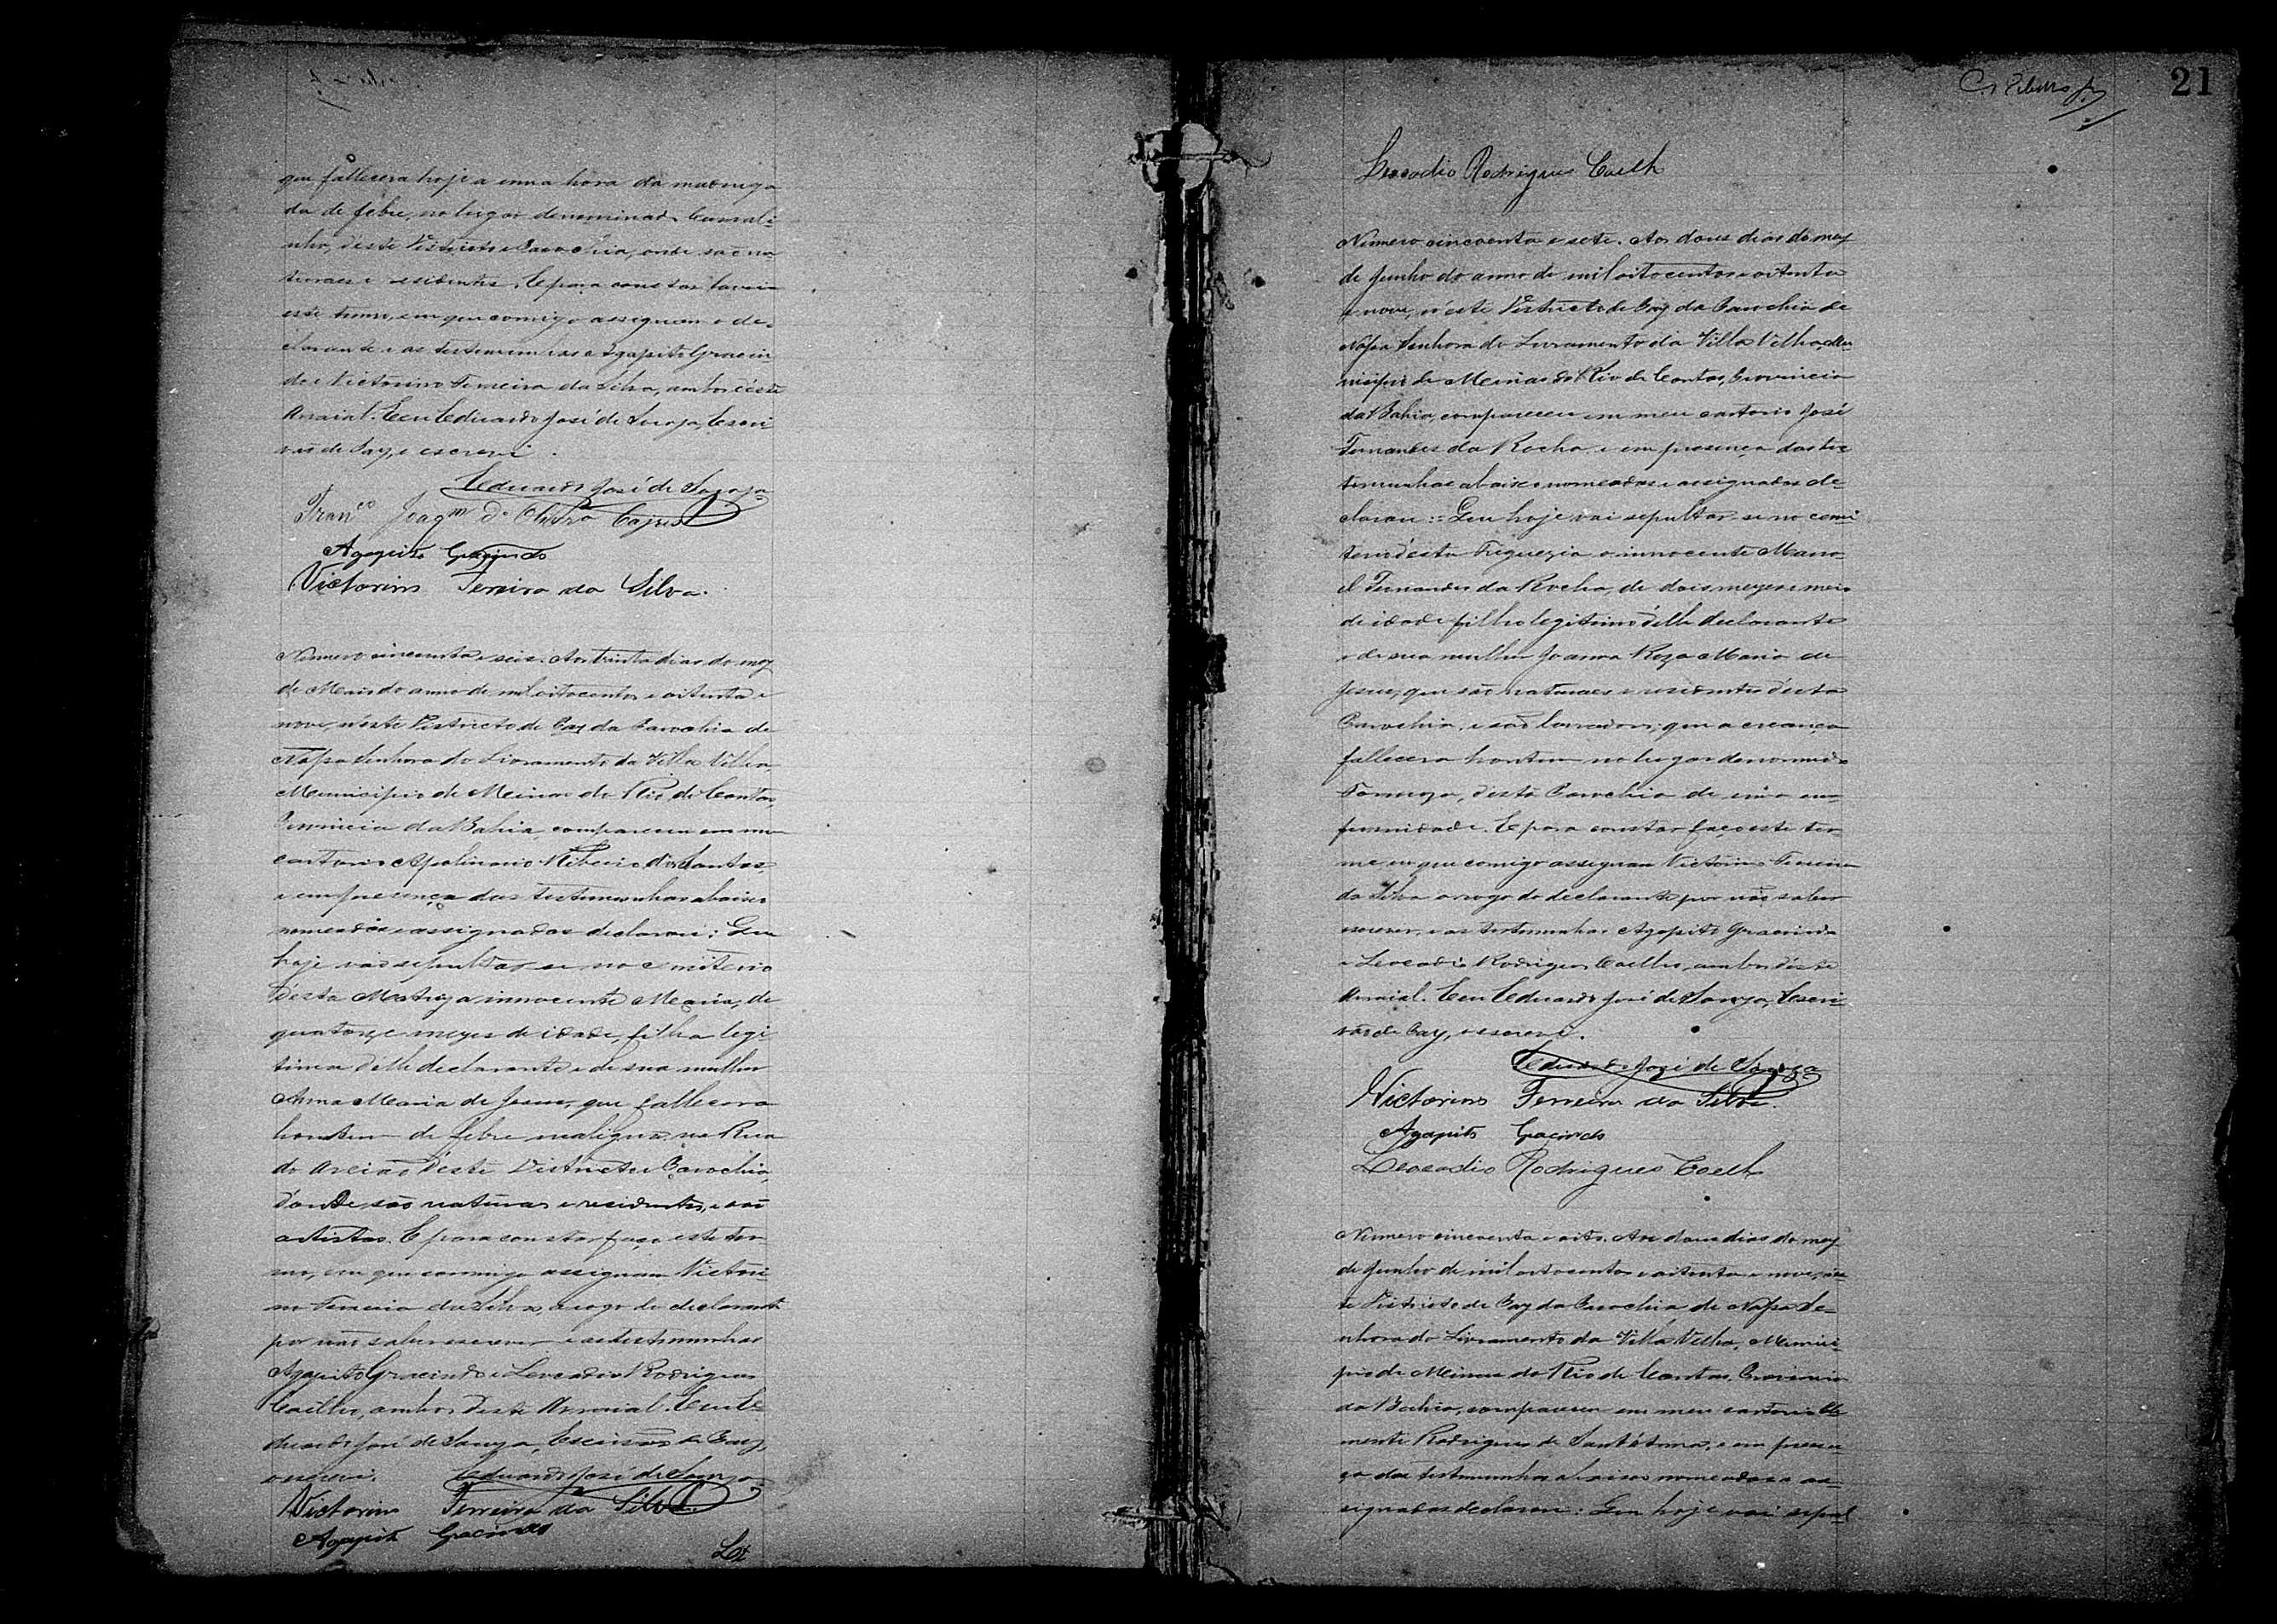 que fallecera hoje a uma hora da madruga
da de febre, no lugar denominado Currali
nho, d'este Districto e Parochia, onde são na
turaes e residentes. E para constar lavrei
este termo, em que comigo assignam o de-
clarante e as testemunhas Agapito Gracin
do e Victorino Ferreira da Silva, ambos d'este
Arraial. Eu Eduardo José de Souza, Escri-
vão de Paz, o escrevi.
Eduardo José de Souza
Franco Joaqm de
Agapito Gracindo
Victorino Ferreira da Silva.
Numero cincoenta e seis. Aos trinta dias do mez
de Maio do anno de mil oitocentos e oitenta e
nove, n'este Districto de Paz da Parochia de
Nossa Senhora do Livramento da Villa Velha,
Municipio de Minas do Rio de Contas,
Provincia da Bahia, compareceu em meu
cartorio Apolinario Ribeiro dos Santos,
e em presença das testemunhas abaixo
nomeadas e assignadas declarou: Que
hoje vae sepultar-se no cemiterio
d'esta Matriz a innocente Maria, de
quatorze mezes de idade, filha legi-
tima d'elle declarante e de sua mulher
Anna Maria de Jesus, que fallecera
hontem de febre maligna na Rua
do Areião d'este Districto e Parochia,
d'onde são naturaes e residentes, e são
artistas. E para constar faço este ter
mo, em que commigo assignam Victori-
no Ferreira da Silva, a rogo do declarante
por não saber escrever e as testemunhas
Agapito Gracindo e Leocadio Rodrigues
Coelho, ambos d'este Arraial. Eu E-
duardo José de Souza, Escrivão de Paz,
o escrevi. Eduardo José de Souza
Victorino Ferreira da Silva
Agapito Gracindo
21
Leocadio Rodrigues Coelh
Numero cincoenta e sete. Aos dous dias do mez
de Junho do anno de mil oitocentos e oitenta
e nove, n'este Districto de Paz da Parochia de
Nossa Senhora do Livramento da Villa Velha, Mu
nicipio de Minas do Rio de Contas, Provincia
da Bahia, compareceu em meu cartorio José
Fernandes da Rocha, e em presença das tes
temunhas abaixo nomeadas e assignadas de-
clarou: Que hoje vai sepultar-se no cemi
terio d'esta Freguezia o innocente Mano-
el Fernandes da Rocha, de dois mezes e meio
de idade, filho legitimo d'elle declarante
e de sua mulher Joanna Roza Maria de
Jesus, que são naturaes e residentes d'esta
Parochia, e são lavradores; que a creança
fallecera hontem no lugar denominado
d'esta Parochia de uma en-
fermidade. E para constar faço este ter-
mo em que comigo assignam Victorino Ferreira
da Silva a rogo do declarante por não saber
escrever, e as testemunhas Agapito Gracindo
e Leocadio Rodrigues Coelho, ambos d'este
Arraial. Eu Eduardo José de Souza, Escri-
vão de Paz, o escrevi.
Eduardo José de Souza
Victorino Ferreira da Silva.
Agapito Gracindo
Leocadio Rodrigues Coelh
Numero cincoenta e oito. Aos dous dias do mez
de Junho de mil oitocentos e oitenta e nove, n'es
te Districto de Paz da Parochia de Nossa Se-
nhora do Livramento da Villa Velha, Munici
pio de Minas do Rio de Contas, Provincia
da Bahia, compareceu em meu cartorio Cle
mente Rodrigues de Sant'Anna, e em presen-
ça das testemunhas abaixo nomeadas e as-
signadas declarou: Que hoje vai sepul